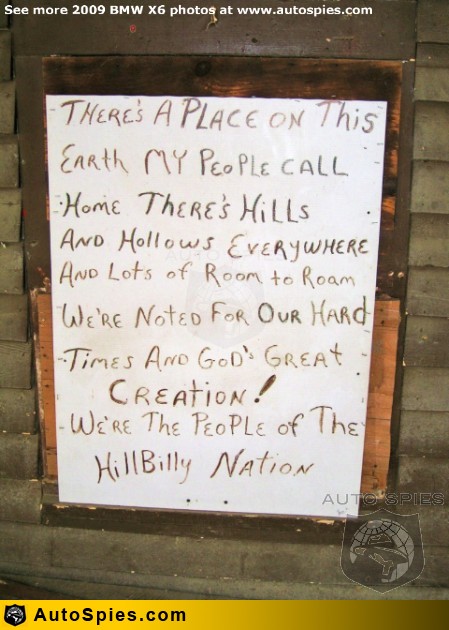 See more 2009 BMW X6 photos at www.autospies.com
There's A Place on This
Earth My People Call
Home There's Hills
And Hollows Everywhere
And Lots of Room to Roam
We're Noted For Our Hard
Times And God's Great
Creation!
We're The People of The
HillBilly Nation
AUTO SPIES
AutoSpies.com